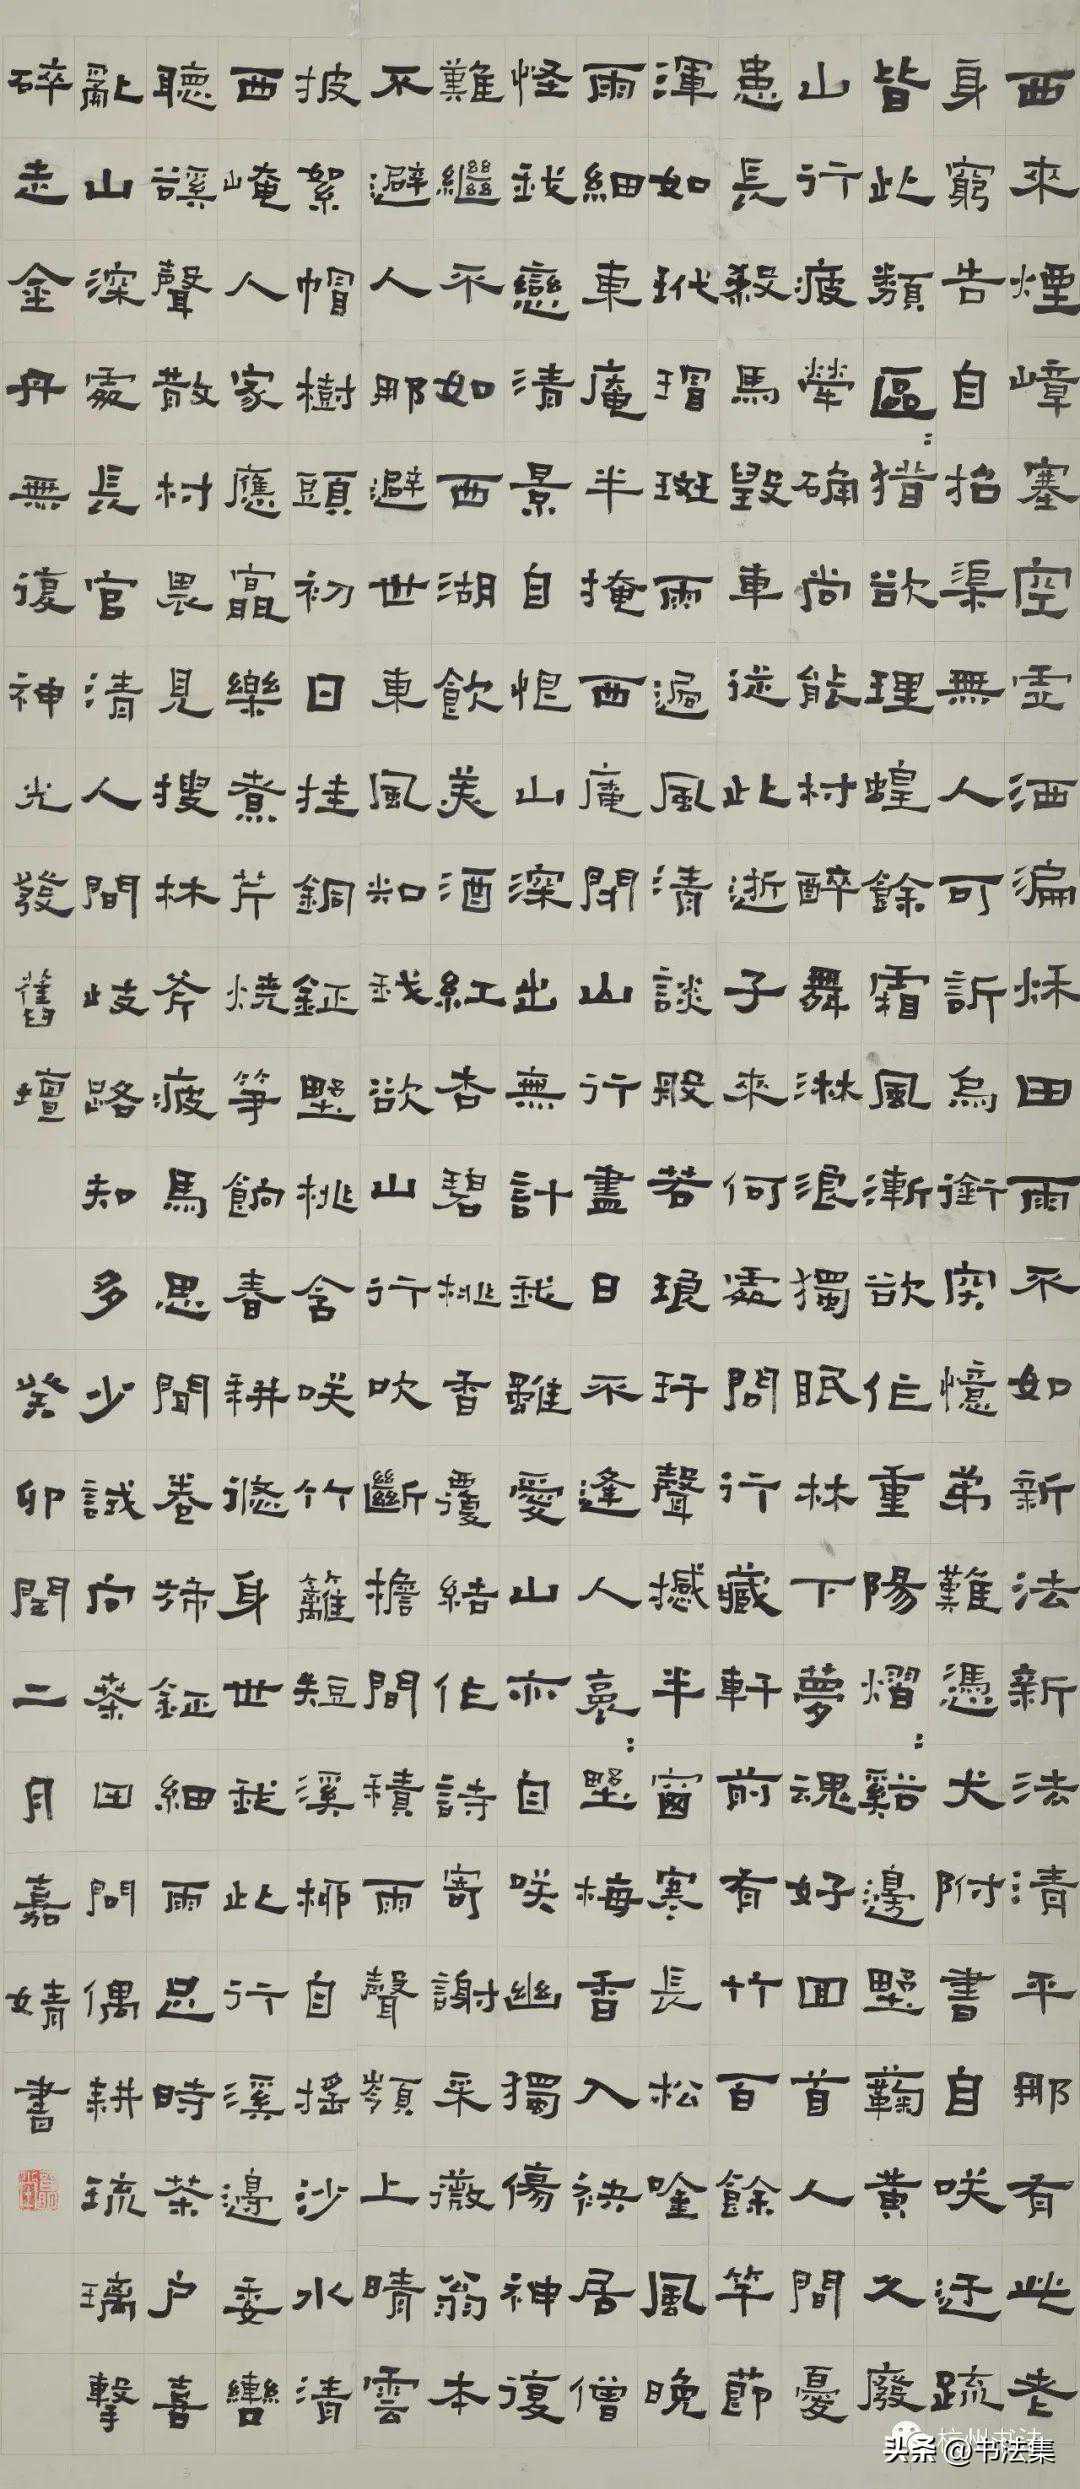 西來煙嶂塞空虛洒徧秋田雨不如新法新法清平那有此老
身窮告自招渠無人可訴烏銜宍憶弟難憑犬附書自咲迂疏
皆此類區：猶欲理蝗餘霜風漸欲作重陽熠：谿邊野鞠黃久廢
山行疲犖确尚能村醉舞淋浪獨眠林下夢魂好回首人間憂
患長殺馬毀車從此逝子來何處問行藏軒前有竹百餘竿節
渾如玳瑁斑雨過風清談般若琅玕聲撼半窗寒長松吟風晚
雨細東庵半掩西庵閉山行盡日不逢人裛：野梅香入袂居僧
怪我戀清景自怪山深出無計我雖愛山亦自咲幽獨傷神復
難繼不如西湖飲美酒紅杏碧桃香覆結作詩寄謝采薇翁本
不避人那避世東風知我欲山行吹斷檐間積雨聲嶺上晴雲
披絮帽樹頭初日挂銅鉦野桃含咲竹籬短溪柳自搖沙水清
西崦人家應最樂煮芹燒筍餉春耕悠身世我此行溪邊委轡
聽谿聲散材畏見搜林斧疲馬思聞卷旆鉦細雨足時茶户喜
亂山深處長官清人間岐路知多少試向桑田問偶耕琉璃擊
碎走金丹無復神光發舊壇
癸卯閏二月嘉婧書
头条@书法集
杭州书法